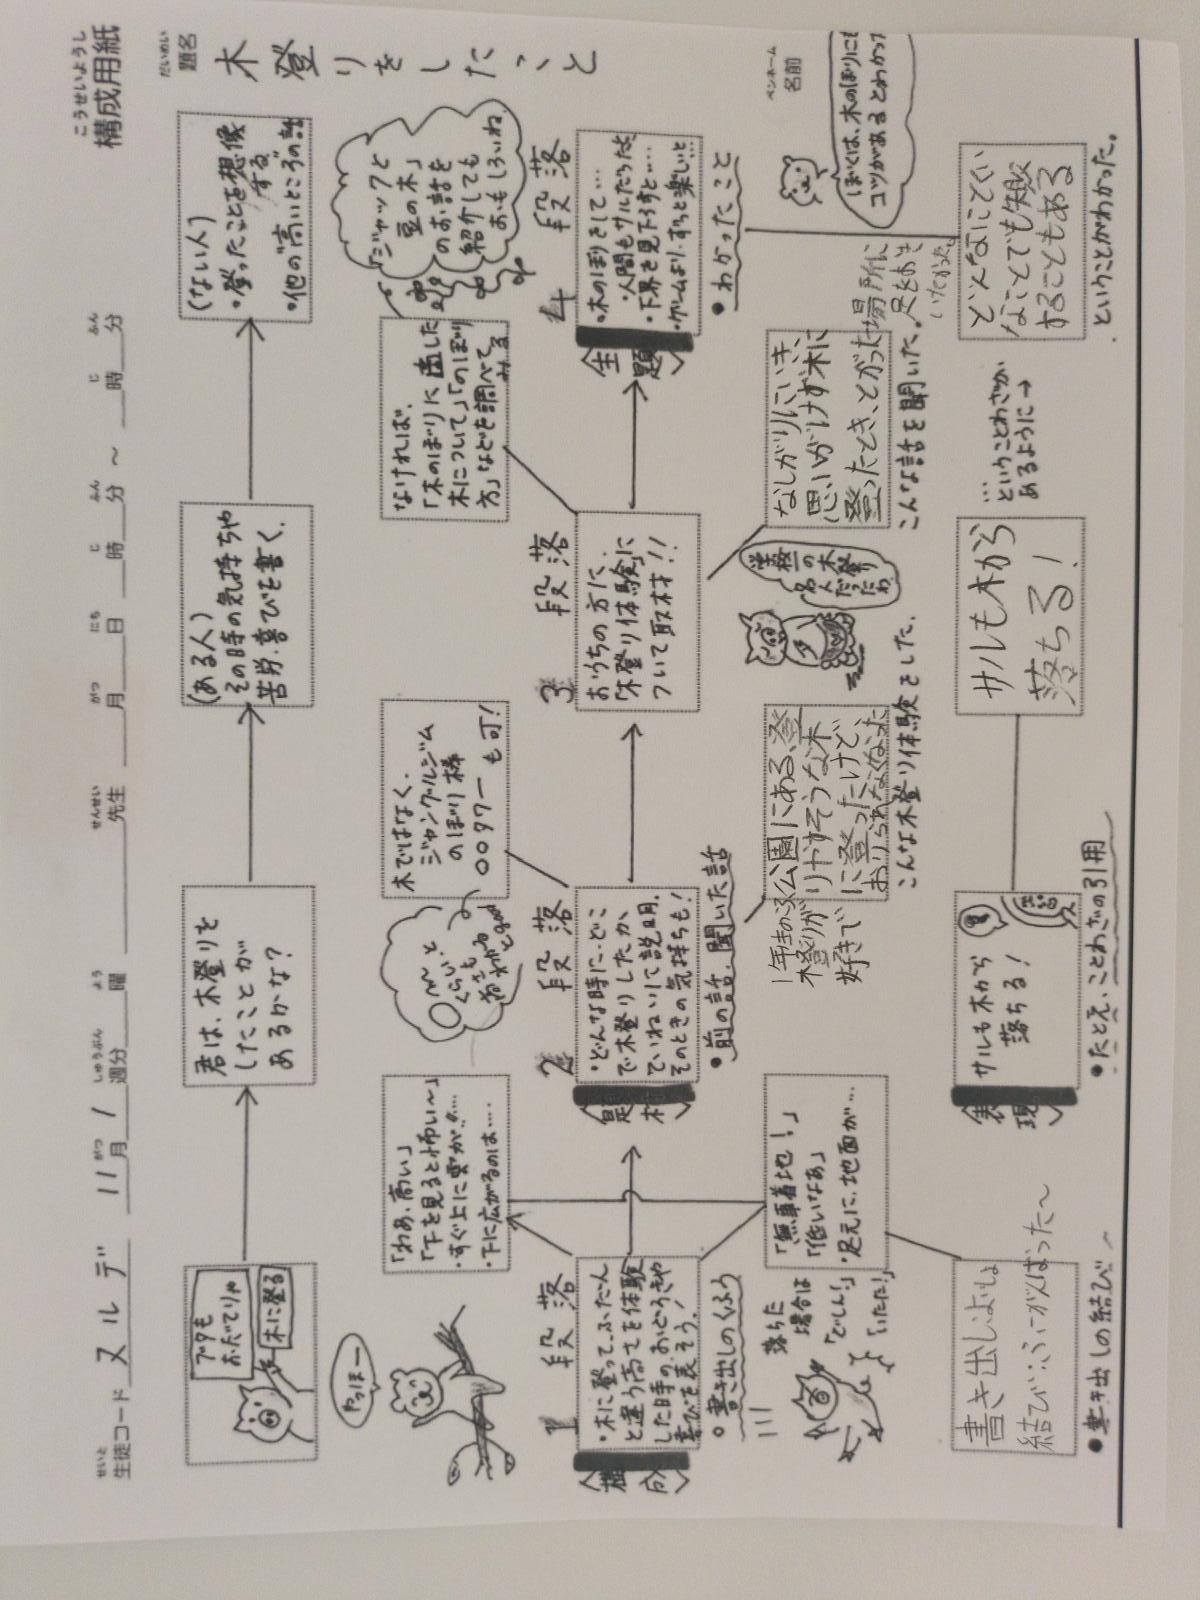 こうせいようし
構成用紙
せいと
生徒コード ヌルデ 11月1週分 曜
がつ しゅうぶん よう
せんせい がつ にち じ ふん じ ふん
先生 月 日 時 分 ~ 時 分
だいめい
題名 木登りをしたこと
ペンネーム
名前
ブタも
おだてりゃ
木に登る
君は、木登りを
したことが
あるかな?
(ある人)
その時の気持ちや
苦労・喜びを書く.
(ない人)
・登ったことを想像
する
・他の"高いところの話
やっほー
「わあ、高い」
「下を見ると怖い〜」
・すぐ上に雲が!…
・下に広がるのは…
木ではなく、
ジャングルジム
のぼり棒
〇〇タワー も可!
なければ、
「木のぼりに適した
木について」「のぼり
方」などを調べて
みる
「ジャックと
豆の木」
のお話を
紹介しても
おもしろいね
1 段落
〈構成〉
・木に登って、ふだん
と違う高さを体験
した時の、おどろきや
喜びを表そう!
・書き出しのくふう
2 段落
〈題材〉
・どんな時に・どこ
で木登りしたか、
ていねいに説明.
そのときの気持ちも!
・前の話、聞いた話
3 段落
おうちの方に、
「木登り体験」に
ついて取材!!
4 段落
〈主題〉
・木のぼりをして…
・人間もサルだったよ
・下界を見下ろすと…
・ゲームより、ずっと楽しい…
・わかったこと
落ちた
場合は
「どしん!」
「いたた!」
「無事着地!」
「低いなぁ」
・足元に、地面が…
公園にある、登
りやすそうな木
に登ったけど、
おりられなくなった
好きで
こんな木登り体験をした.
学校一の木登り
名人だったわ
なしがりにいき、
思いがけず木に
登ったとき、とがった場所に
足をおき
こんな話を聞いた.
ぼくは、木のぼりにも
コツがあるとわかった
書き出しよ
結び
・書き出しの結び
〈表現〉
サルも木から
落ちる!
・たとえ、ことわざの引用
サルも木から
落ちる!
…ということわざが
あるように→
どんなにとくい
なことでも失敗
することもある
ということがわかった.